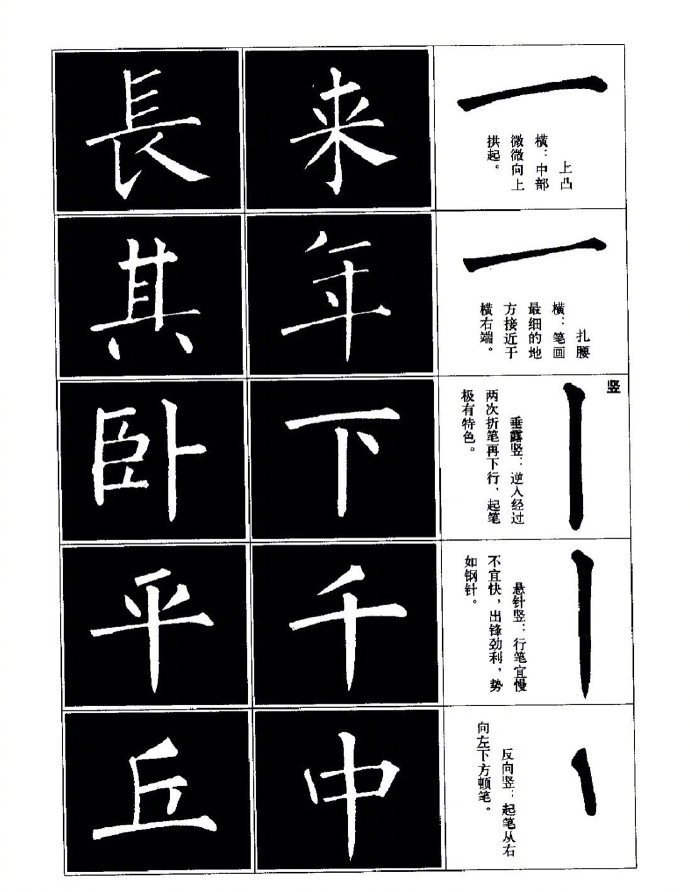 上凸
横：中部
微微向上
拱起。
来
長
扎腰
横：笔画
最细的地
方接近于
横右端。
年
其
竖
垂露竖：逆入经过
两次折笔再下行，起笔
极有特色。
下
卧
悬针竖：行笔宜慢
不宜快，出锋劲利，势
如钢针。
千
平
反向竖：起笔从右
向左下方顿笔。
中
丘